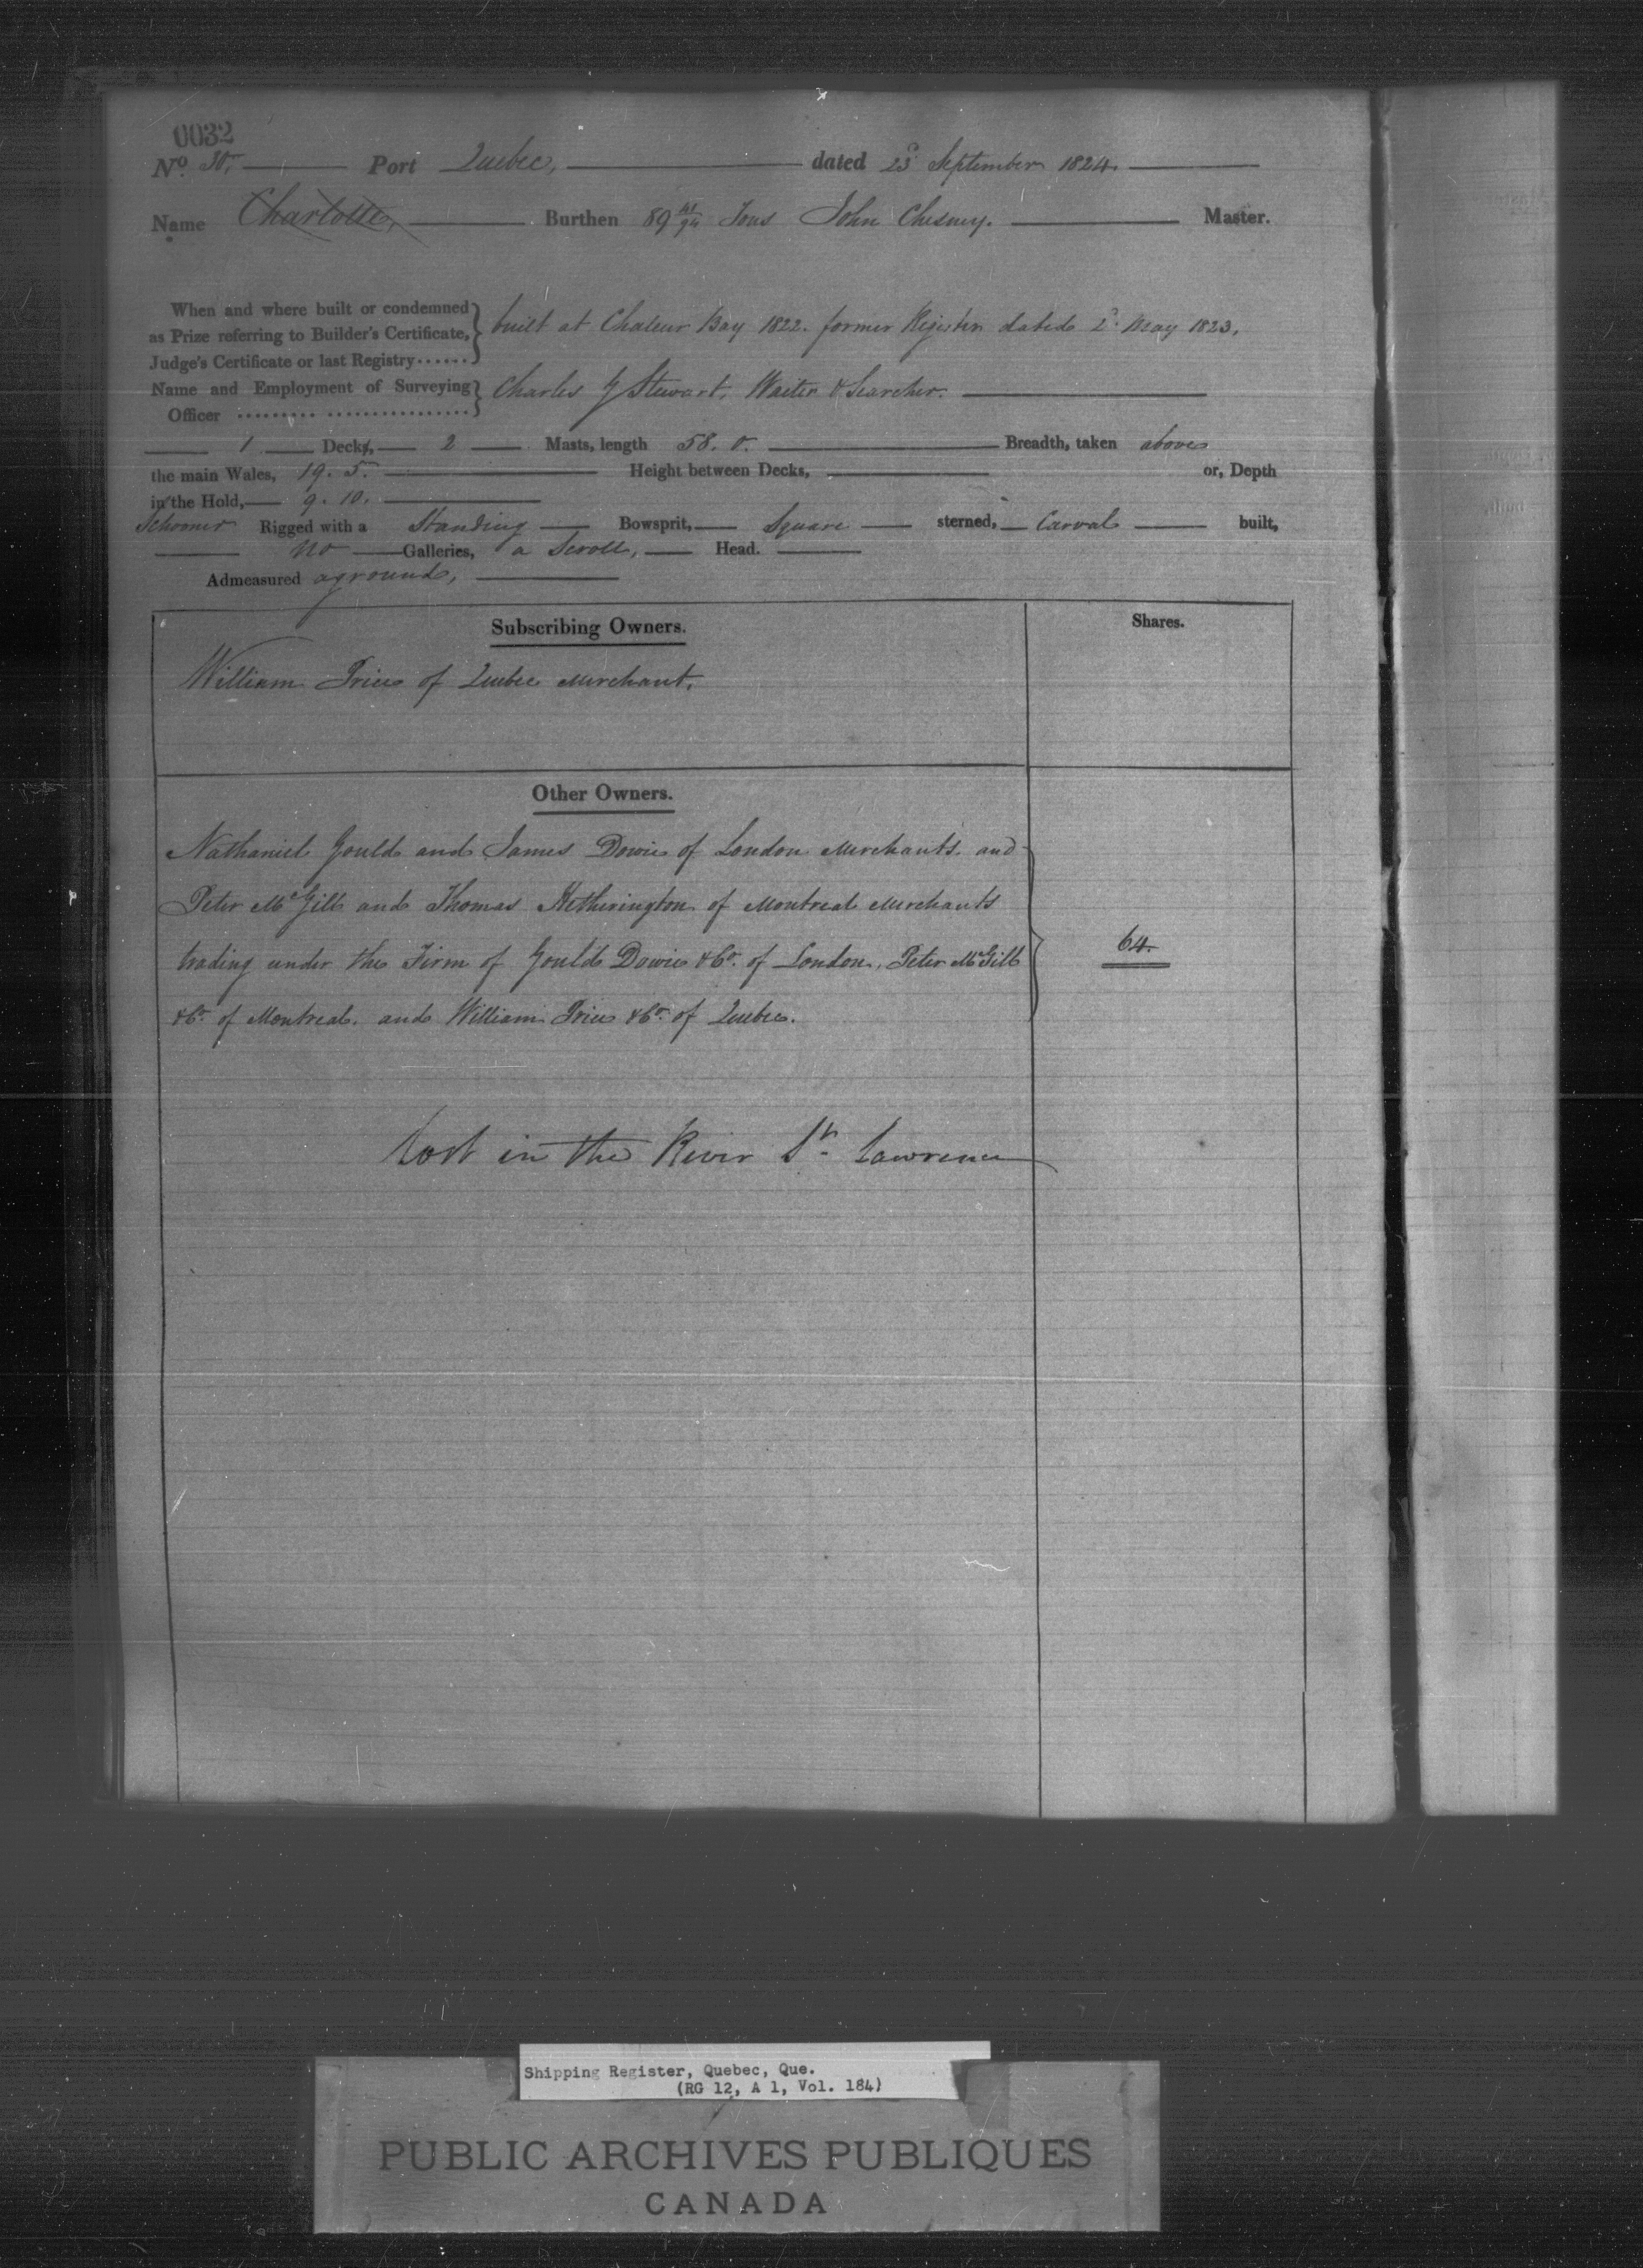 0032
No. 30, Port Quebec, dated 23d September 1824.
Name Charlotte, Burthen 89 41/94 Tons John Chesney. Master.
When and where built or condemned
as Prize referring to Builder's Certificate, built at Chaleur Bay 1822. former Register dated 2d May 1823.
Judge's Certificate or last Registry......
Name and Employment of Surveying Charles G Stewart, Waiter & Searcher.
Officer ......... ................
1 Decks, 2 Masts, length 58. 0. Breadth, taken above
the main Wales, 19. 5. Height between Decks, or, Depth
in the Hold, 9. 10.
Schooner Rigged with a Standing Bowsprit, Square sterned, Carval built,
no Galleries, a Scroll, Head.
Admeasured aground,
Subscribing Owners. Shares.
William Price of Quebec Merchant.
Other Owners.
Nathaniel Gould and James Dowie of London Merchants. and
Peter McGill and Thomas Hetherington of Montreal Merchants
trading under the Firm of Gould Dowie & Co. of London, Peter McGill 64.
& Co. of Montreal. and William Price & Co. of Quebec.
Lost in the River St. Lawrence
Shipping Register, Quebec, Que.
(RG 12, A 1, Vol. 184)
PUBLIC ARCHIVES PUBLIQUES
CANADA